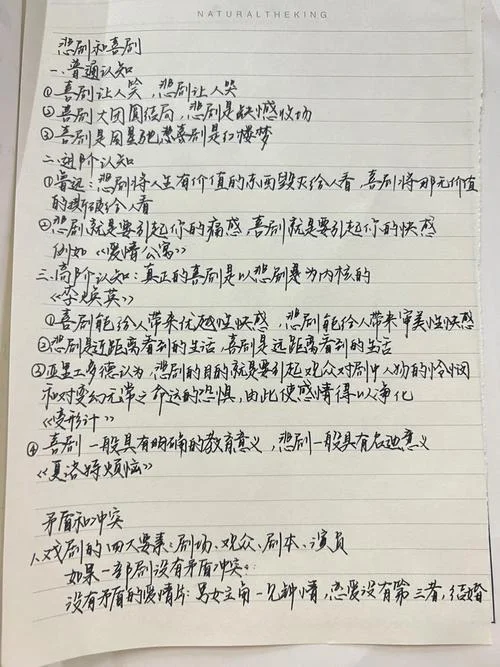 NATURALTHEKING
悲剧和喜剧
一、普通认知
①喜剧让人笑,悲剧让人哭
②喜剧大团圆结局,悲剧是缺憾收场
③喜剧是周星驰悲喜剧是红楼梦
二、进阶认知
①鲁迅:悲剧将人生有价值的东西毁灭给人看,喜剧将那无价值
的撕破给人看
②悲剧就是要引起你的痛感,喜剧就是要引起你的快感
例如《爱情公寓》
三、高阶认知:真正的喜剧是以悲剧为内核的
《李焕英》
①喜剧能给人带来优越性快感,悲剧能给人带来审美性快感
②悲剧是近距离看到的生活,喜剧是远距离看到的生活
③亚里工多德认为,悲剧的目的就是要引起观众对剧中人物的怜悯
和对变幻无常之命运的恐惧,由此使感情得以净化
《变形计》
④喜剧一般具有明确的教育意义,悲剧一般具有意义
《夏洛特烦恼》
矛盾和冲突
1、戏剧的四大要素:剧场、观众、剧本、演员
如果一部剧没有矛盾冲突。:
没有矛盾的爱情片:男女主角一见钟情,恋爱没有第三者,结婚